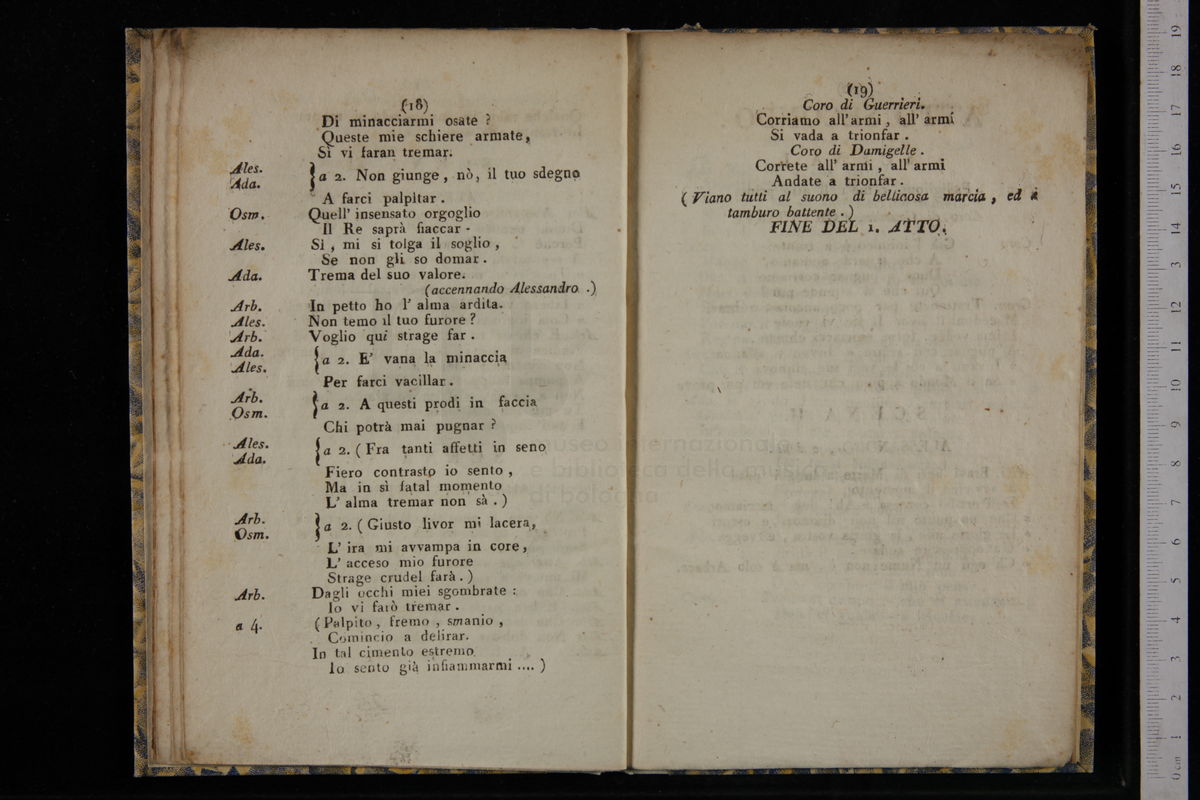 (18)
Di minacciarmi osate ?
Queste mie schiere armate,
Sì vi faran tremar.
Ales.
Ada.
a 2. Non giunge, nò, il tuo sdegno
A farci palpitar.
Osm. Quell' insensato orgoglio
Il Re saprà fiaccar.
Ales. Sì, mi si tolga il soglio,
Se non gli so domar.
Ada. Trema del suo valore.
(accennando Alessandro.)
Arb. In petto ho l' alma ardita.
Ales. Non temo il tuo furore ?
Arb. Voglio quì strage far.
Ada.
Ales.
a 2. E' vana la minaccia
Per farci vacillar.
Arb.
Osm.
a 2. A questi prodi in faccia
Chi potrà mai pugnar ?
Ales.
Ada.
a 2. (Fra tanti affetti in seno
Fiero contrasto io sento,
Ma in sì fatal momento
L' alma tremar non sà.)
Arb.
Osm.
a 2. (Giusto livor mi lacera,
L' ira mi avvampa in core,
L' acceso mio furore
Strage crudel farà.)
Arb. Dagli occhi miei sgombrate :
Io vi farò tremar.
a 4. (Palpito, fremo, smanio,
Comincio a delirar.
In tal cimento estremo
Io sento già infiammarmi .... )
(19)
Coro di Guerrieri.
Corriamo all' armi, all' armi
Si vada a trionfar.
Coro di Damigelle.
Correte all' armi, all' armi
Andate a trionfar.
(Viano tutti al suono di bellicosa marcia, ed a
tamburo battente.)
FINE DEL 1. ATTO.
museo internazionale
e biblioteca della musica
di bologna